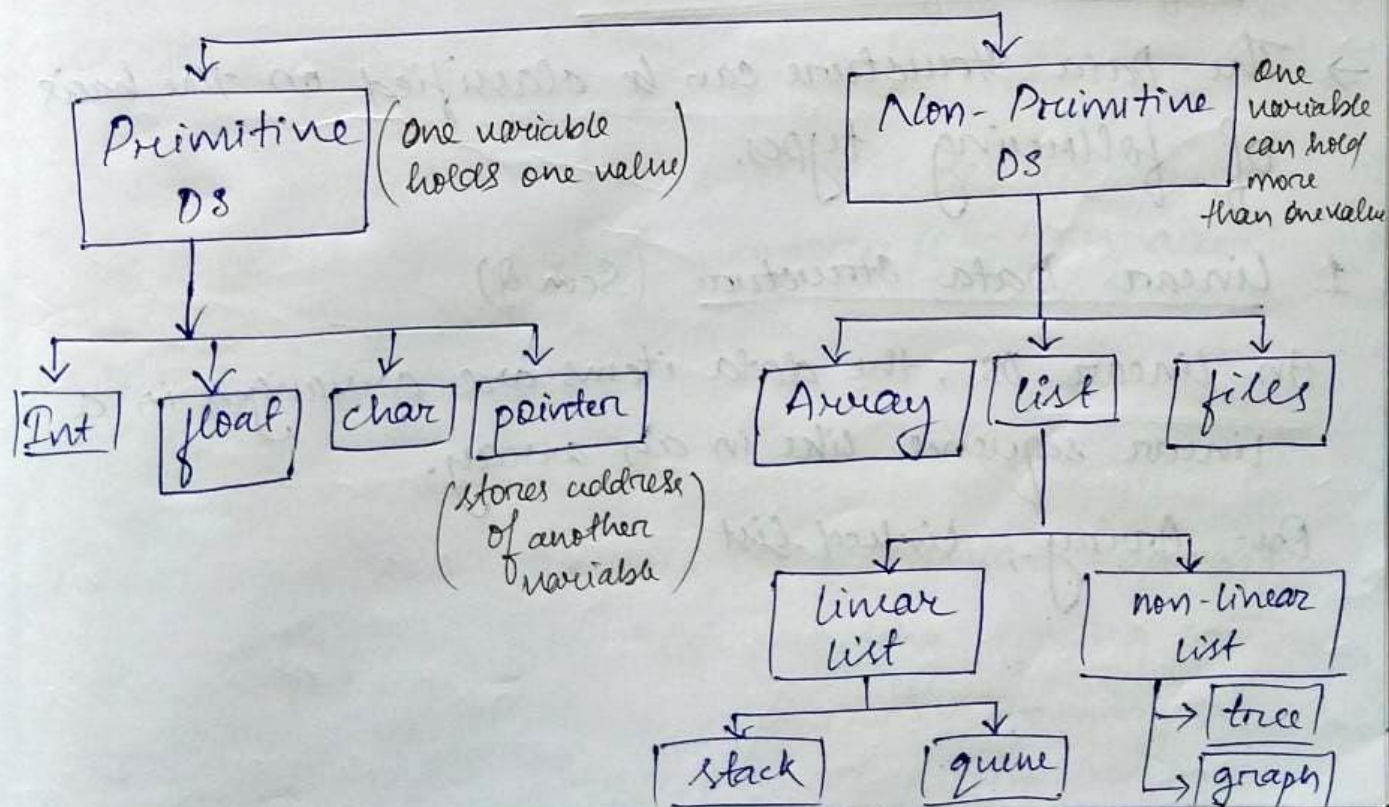 Primitive
DS
(one variable
holds one value)
Non-Primitive
DS
one
variable
can hold
more
than one value
Int
float
char
pointer
(stores address
of another
variable)
Array
list
files
linear
list
non-linear
list
stack
queue
tree
graph